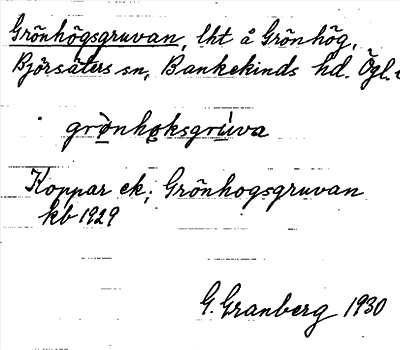 Grönhögsgruvan, lht å Grönhög,
Björsäters sn, Bankekinds hd. Ögl.
grònhøksgrúva
Koppar ek; Grönhogsgruvan
kb 1929
G. Granberg 1930